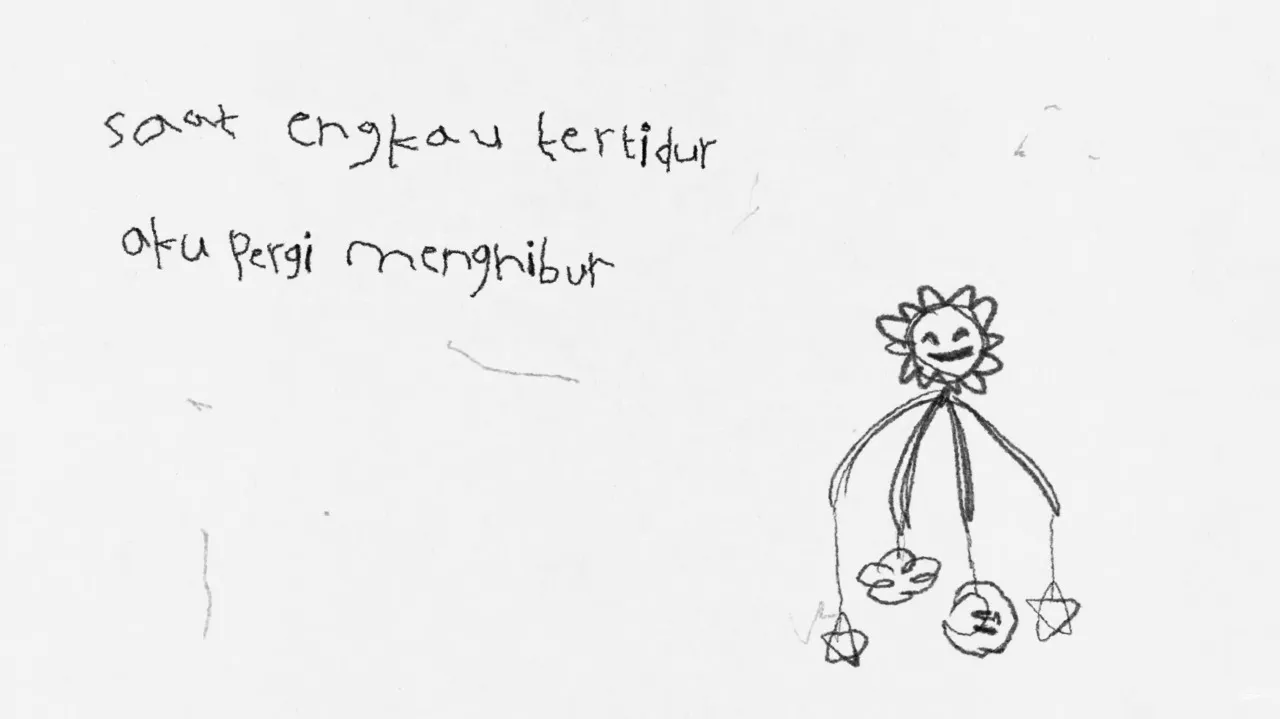 saat engkau tertidur
aku pergi menghibur